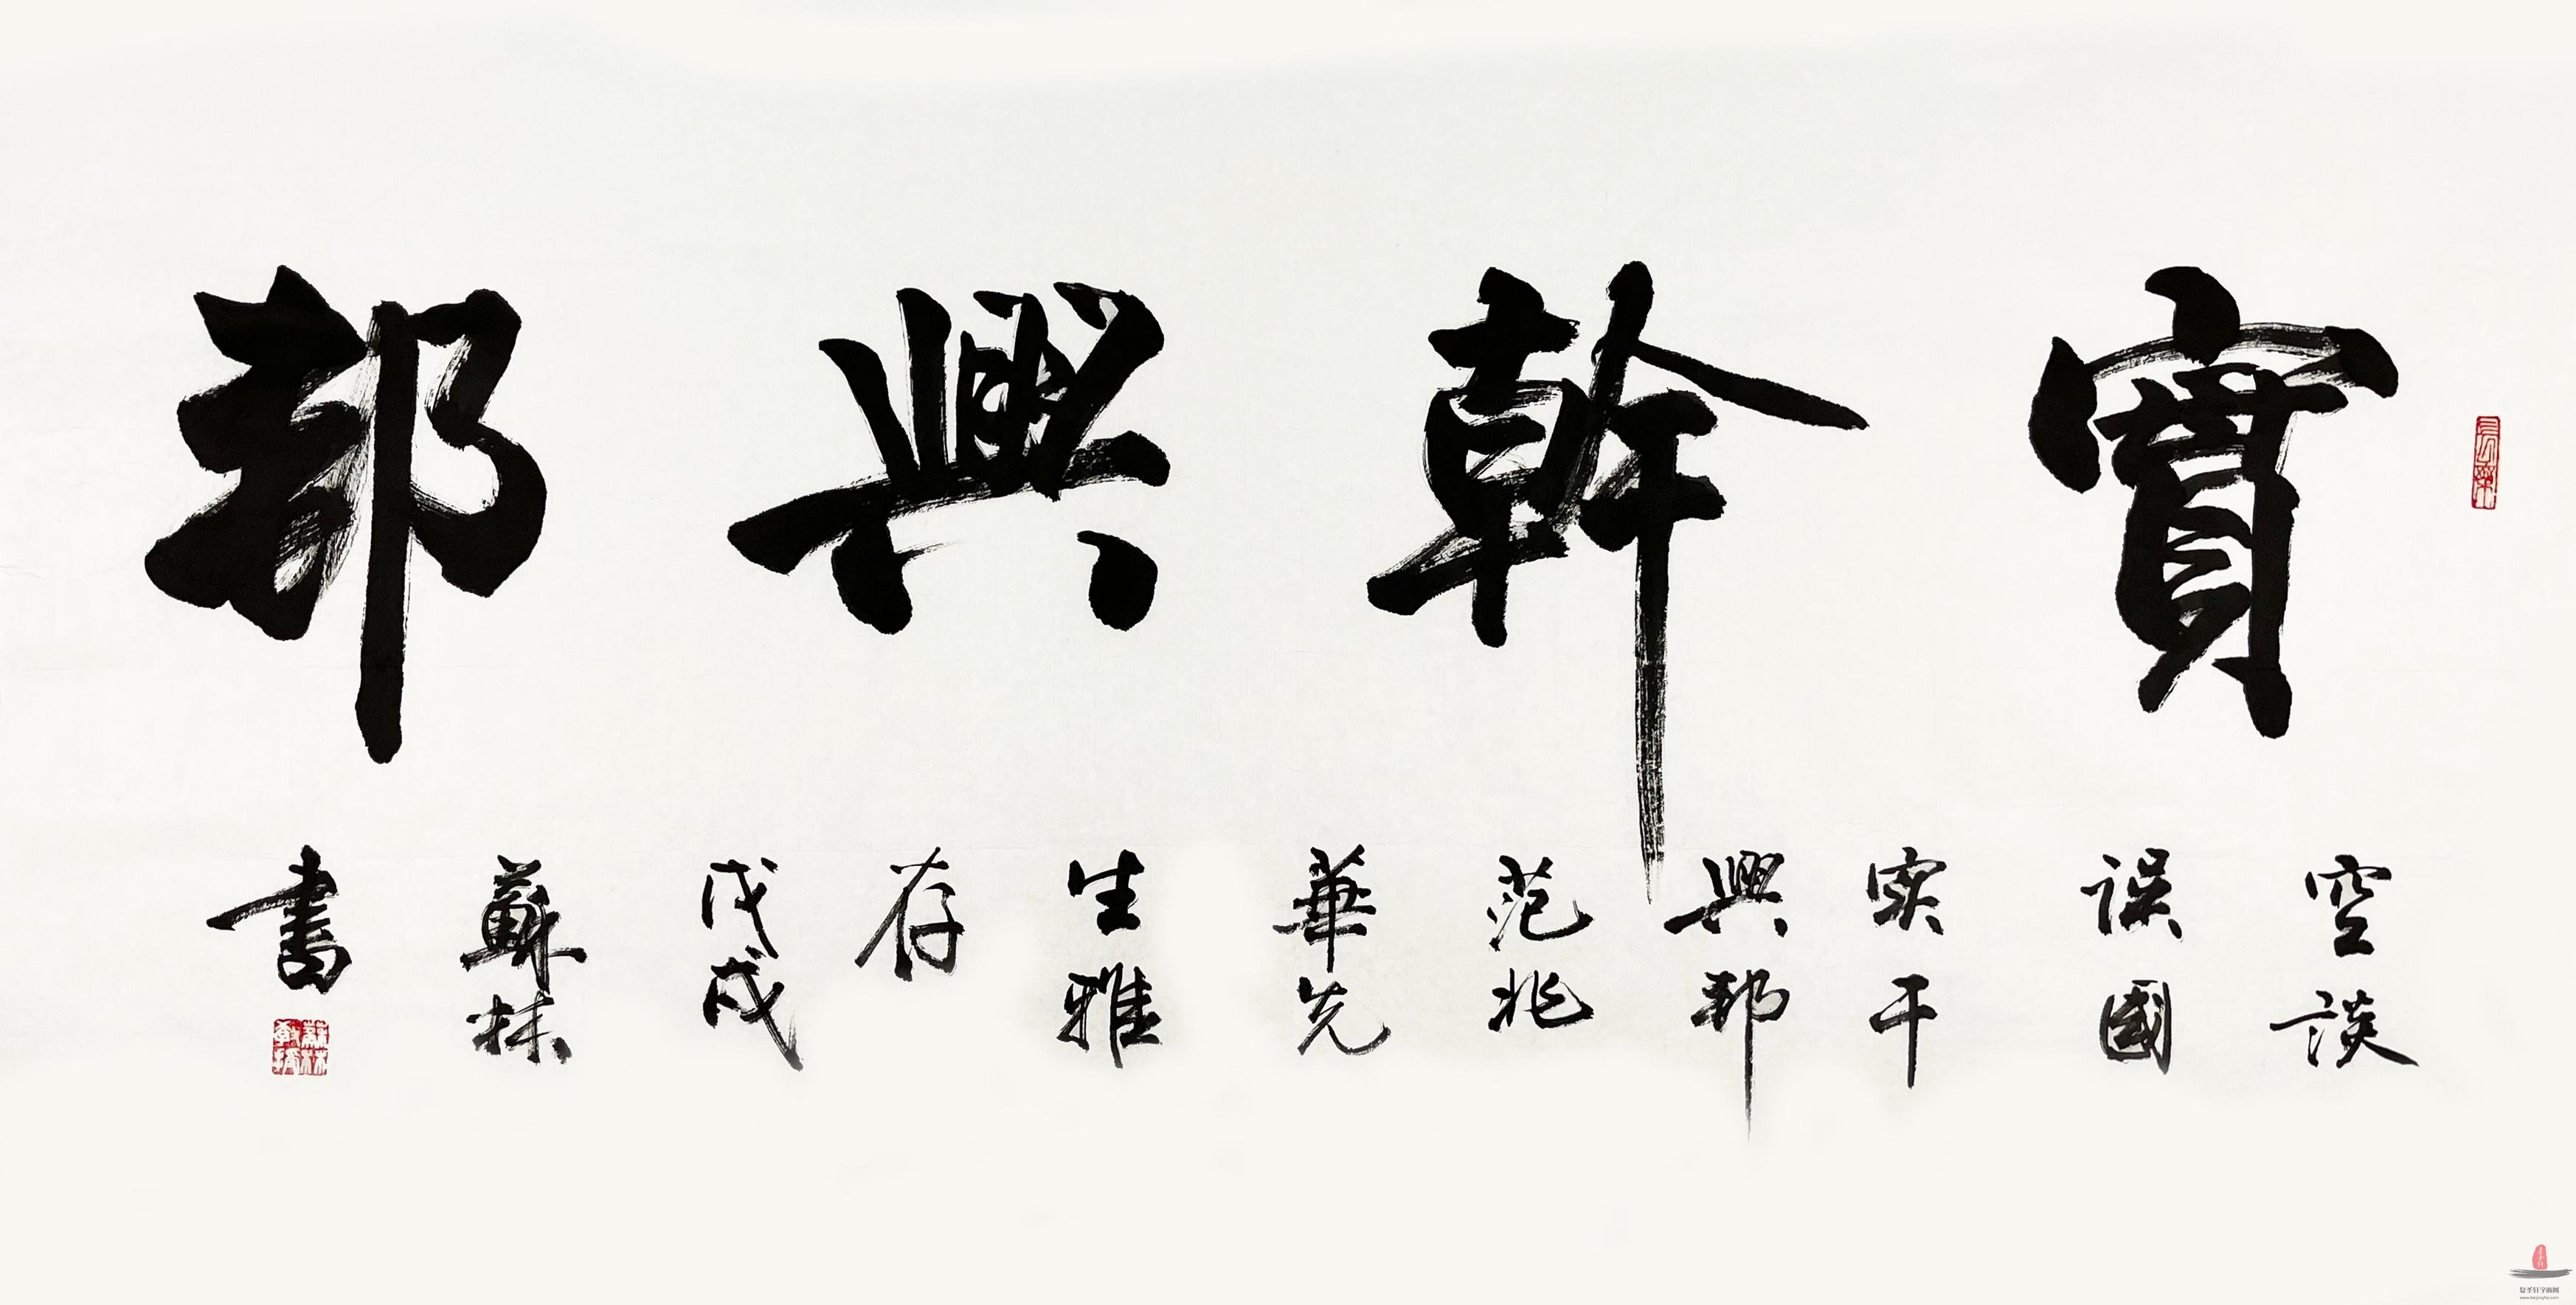 實幹興邦
空談
误國
实干
興邦
范兆
華先
生雅
存
戊戌
蘇林
書